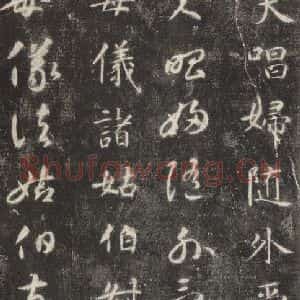 夫唱婦隨外受
夫唱婦隨外受
母儀諸姑伯叔
母儀諸姑伯叔
Shufawang.CN